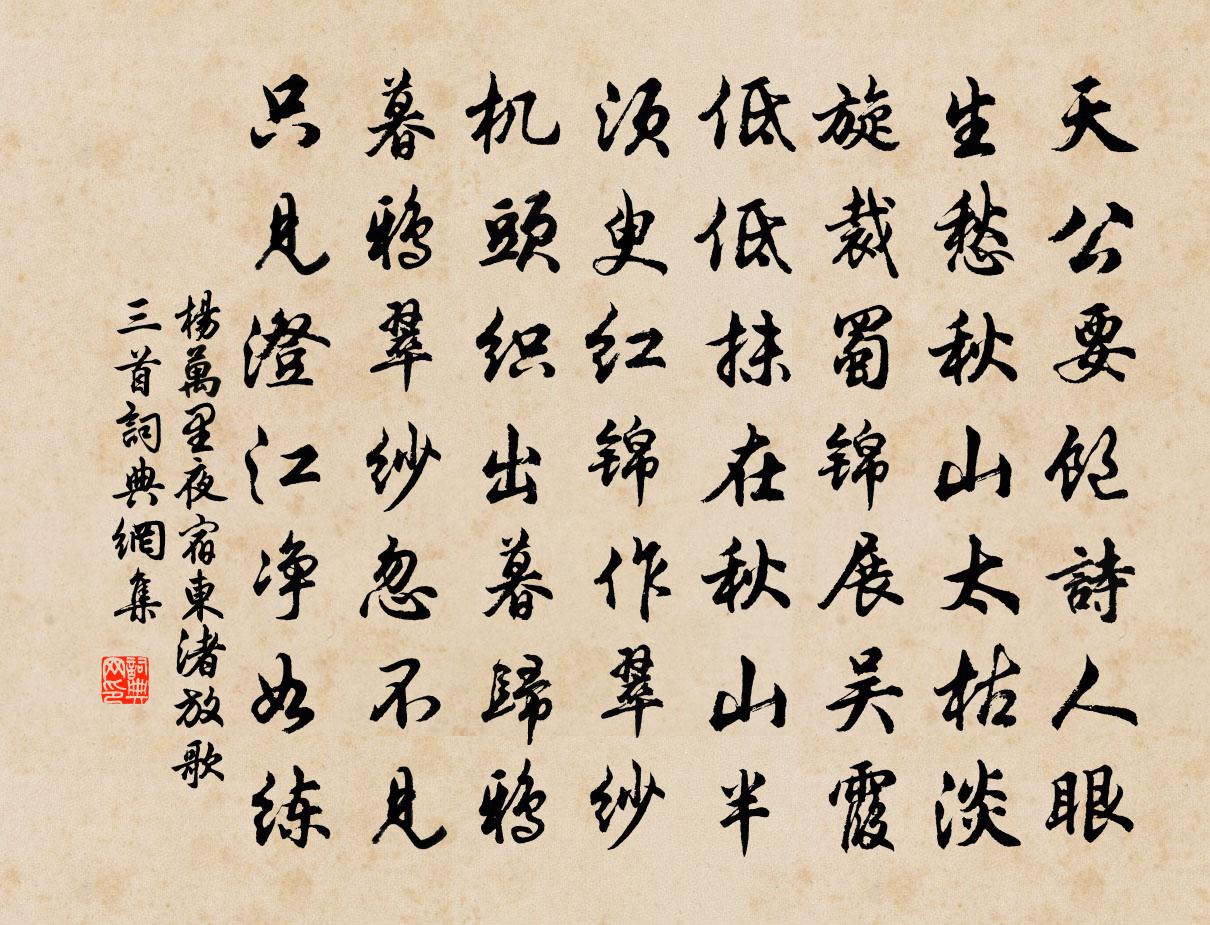 天公要饱詩人眼
生愁秋山太枯淡
旋裁蜀锦展吴霞
低低抹在秋山半
须臾红锦作翠纱
机頭织出暮歸鸦
暮鸦翠纱忽不見
只見澄江净如练
楊萬里夜宿東渚放歌
三首詞典網集
詞典
网印